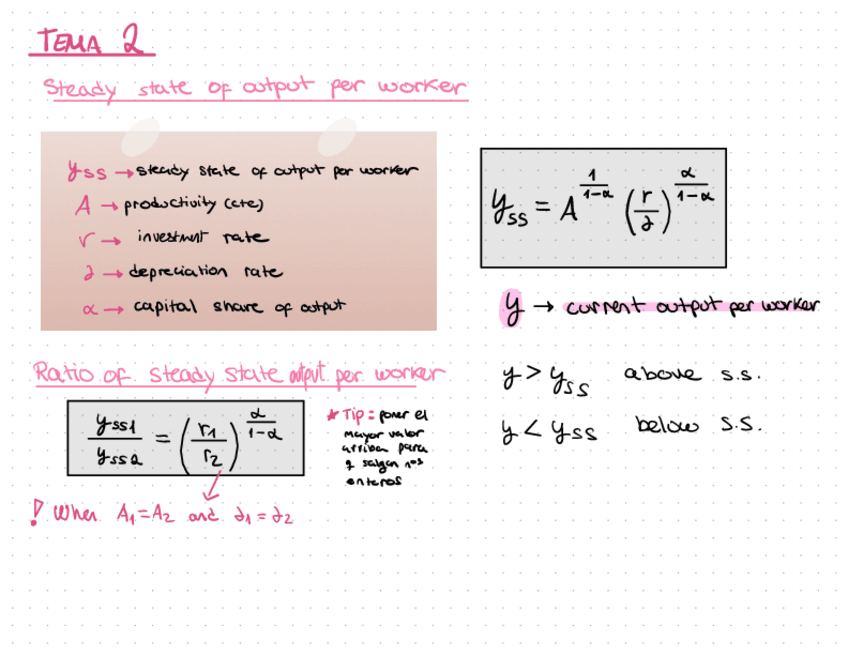 TEMA 2
Steady state of output per worker
yss → steady state of output per worker
A → productivity (cte)
r → investment rate
∂ → depreciation rate
α → capital share of output
yss = A^(1/(1-α)) (r/∂)^(α/(1-α))
y → current output per worker
y > yss above s.s.
y < yss below s.s.
Ratio of steady state output per worker
yss1/yss2 = (r1/r2)^(α/(1-α))
★ Tip: poner el
mayor valor
arriba para
q salgan nos
enteros
! When A1=A2 and ∂1=∂2